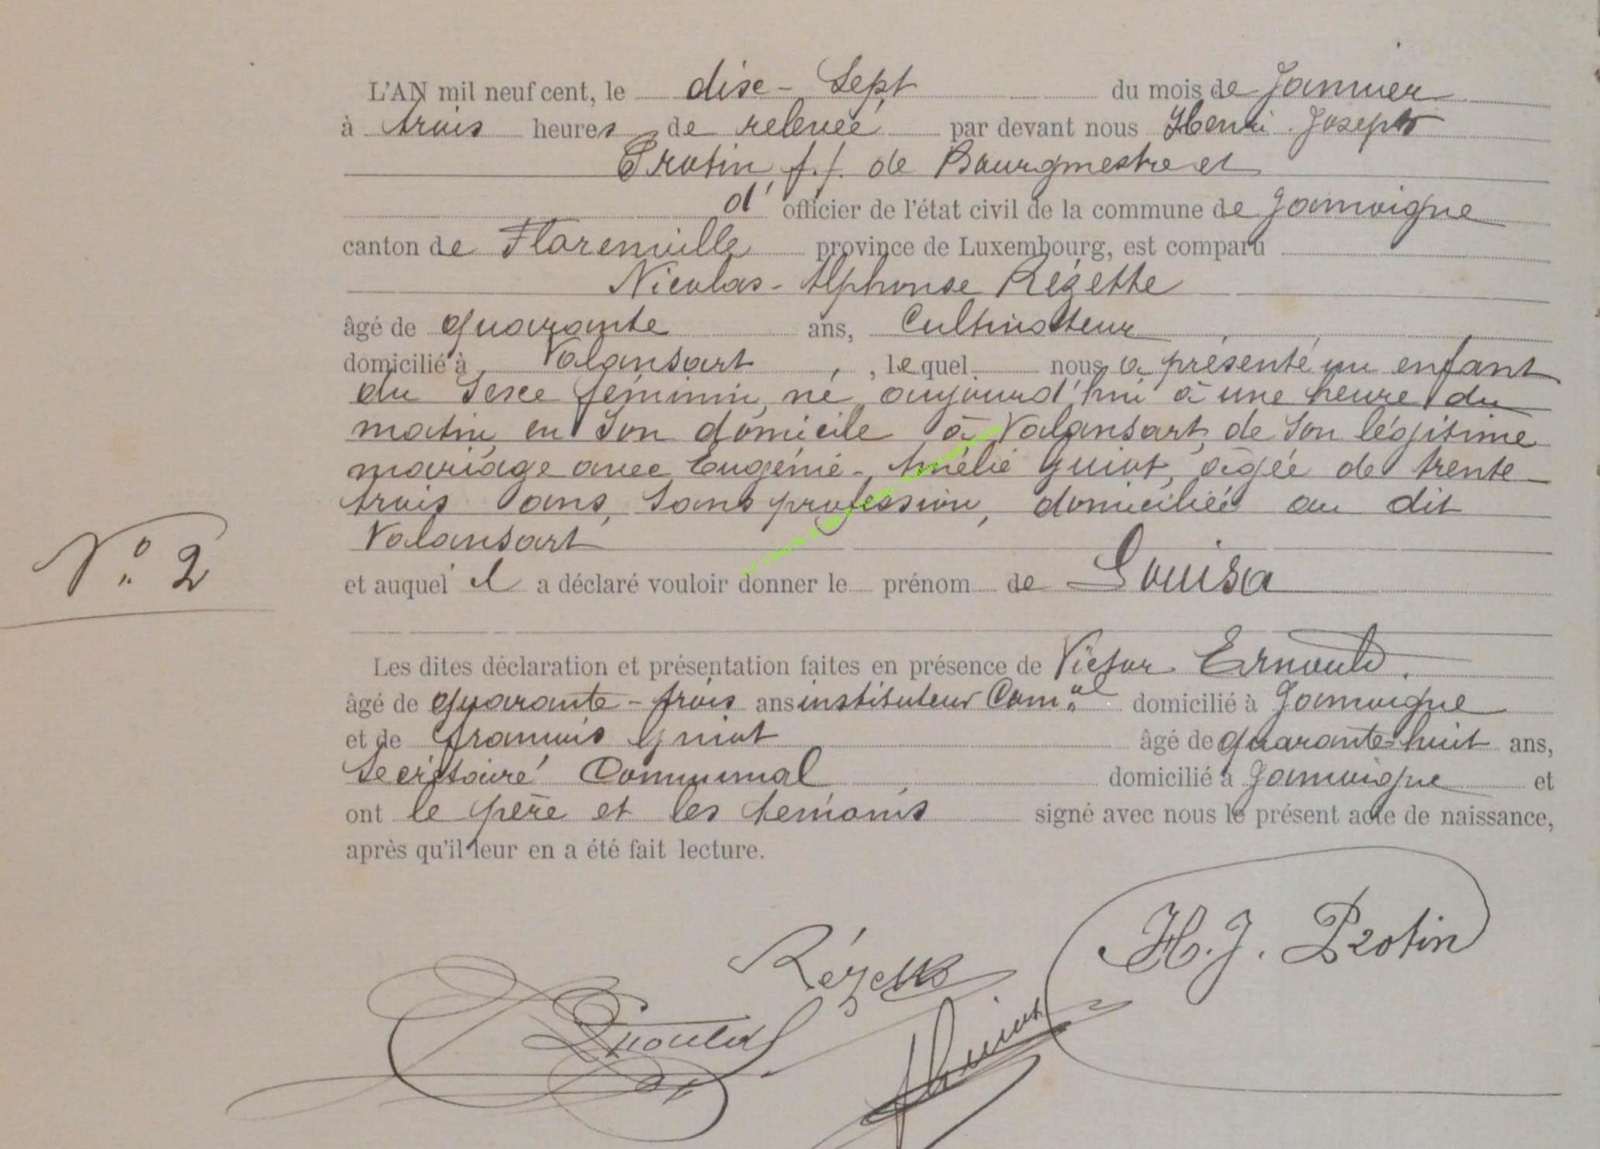 L'AN mil neuf cent, le dix-sept du mois de Janvier
à trois heures de relevée par devant nous Henri Joseph
Protin f.f. de Bourgmestre et
d'officier de l'état civil de la commune de Jamoigne
canton de Florenville province de Luxembourg, est comparu
Nicolas-Alphonse Rézette
âgé de quarante ans, Cultivateur
domicilié à Valansart, lequel nous a présenté un enfant
du sexe féminin, né aujourd'hui à une heure du
matin, en son domicile à Valansart, de son légitime
mariage avec Eugénie-Amélie Guiot, âgée de trente
trois ans, sans profession, domiciliée au dit
Valansart
N° 2
et auquel il a déclaré vouloir donner le prénom de Louisa
Les dites déclaration et présentation faites en présence de Victor Ernould,
âgé de quarante-trois ans instituteur Com.al domicilié à Jamoigne
et de François Guiot âgé de quarante-huit ans,
Secrétaire Communal domicilié à Jamoigne et
ont le père et les témoins signé avec nous le présent acte de naissance,
après qu'il leur en a été fait lecture.
H. J. Protin
Rézette
Ernould
Guiot